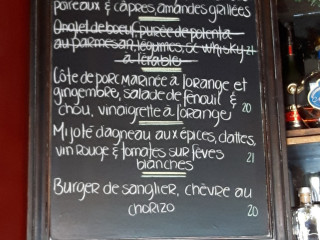 poireaux & câpres, amandes grillées
Onglet de boeuf, purée de polenta
au parmesan, légumes, & whisky 21
à l'érable
Côte de porc marinée à l'orange et
gingembre, salade de fenouil &
chou, vinaigrette à l'orange 20
Mijoté d'agneau aux épices, dattes,
vin rouge & tomates sur fèves 21
blanches
Burger de sanglier, chèvre au
chorizo 20